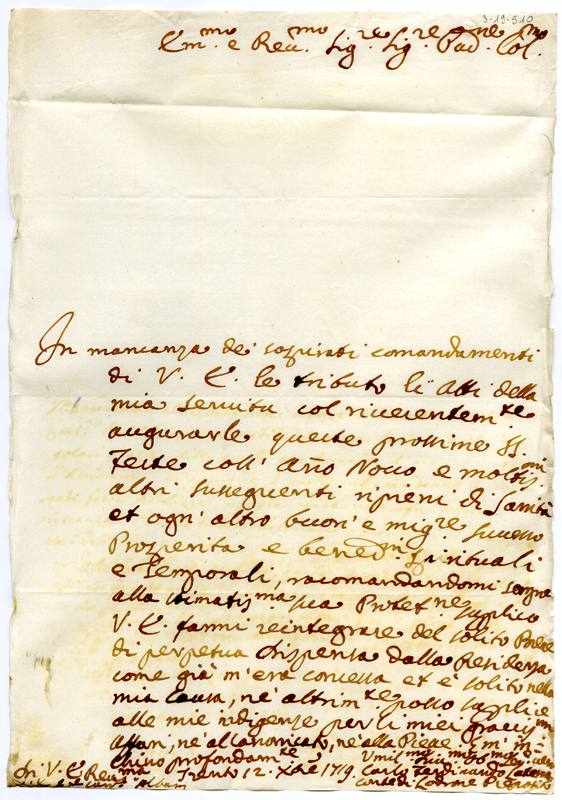 3-19-510
Em.mo e Rev.mo Sig.re Sig.re Pad.ne Col.mo
In mancanza de' sospirati comandamenti
di V. E. le tributo li atti della
mia servitu col riverentem.te
augurarle queste prossime SS.
Feste coll' Año Novo e moltis.mi
altri susseguenti ripieni di Sanità
et ogn' altro buon' e mig.re successo
Prosperita e bened.ni spirituali
e Temporali, racomandandomi sempre
alla stimatis.ma sua Protet.ne supplico
V. E. farmi reintegrare del solito Breve
di perpetua dispensa dalla Residenza
come già m'era concessa et è solito nella
mia causa, ne' altrim.te posso supplire
alle mie indigenze per li miei graviss.mi
affari, ne' al Canonicato, ne' alla Pieve
chino profondam.te
Di V. E. Rev.ma Trento 12. Xbre 1719
Carlo Ferdinando
Conte di Lodrone Preposito